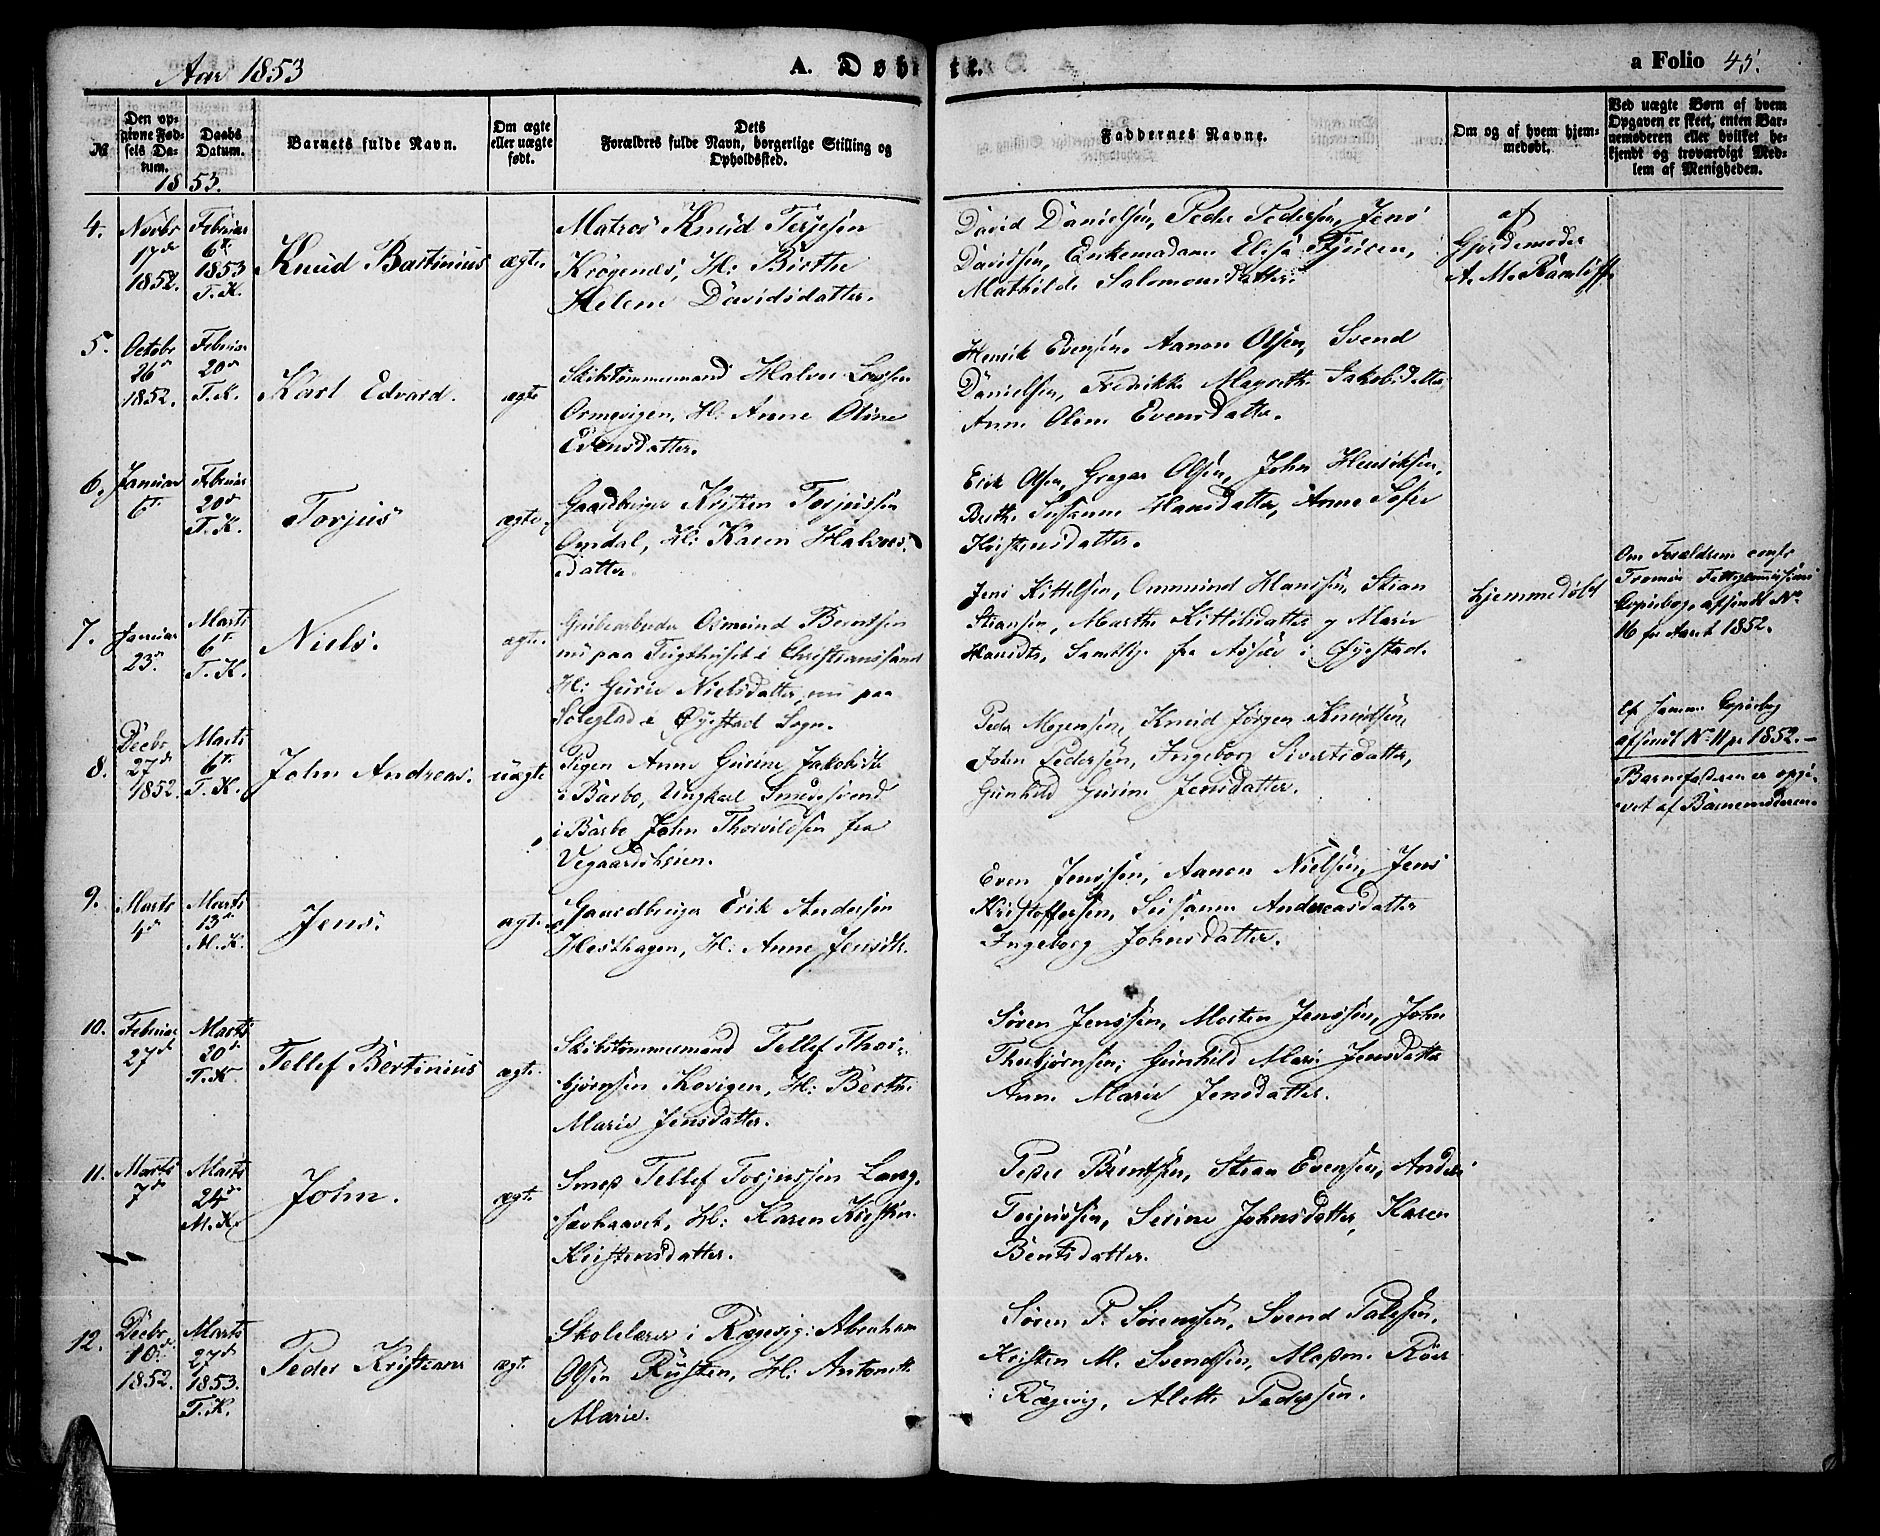 Aar 1853
A. Døbte.
a Folio 45.
№
Den op-
givne Fød-
sels Da-
tum.
Daabs
Datum.
Barnets fulde Navn.
Om ægte
eller uægte
født.
Dets
Forældres fulde Navn, borgerlige Stilling og
Opholdssted.
Faddernes Navne.
Om og af hvem hjem-
medøbt.
Ved uægte Børn af hvem
Opgaven er skeet, enten Bar-
nemoderen eller hvilket be-
kjendt og troværdigt Med-
lem af Menigheden.
1853.
4.
Novbr
17de
1852.
Februar
6te
1853
T. K.
Knud Bertinius
ægte
Matros Knud Terjesen
Krøgenes, H: Birthe
Helene Davidsdatter.
David Danielsen, Peder Pedersen, Jens
Davidsen, Enkemadame Elise
Mathilde Salomonsdatter.
af
Gjordemoder
A. M.
5.
Octobr
26de
1852.
Februar
20de
T. K.
Karl Edvard.
ægte
Skibstømmermand Halvor Larssen
Ormevigen, H: Anne Oline
Evensdatter.
Henrik Evensen, Aanon Olsen, Svend
Danielsen, Fredrikke Magrethe Jakobsdatter
Anne Olene Evensdatter.
6.
Januar
6te
Februar
20de
T. K.
Torjus
ægte
Gaardbruger Kristen Torjussen
Omdal, H: Karen Halvors-
datter.
Erik Olsen, Gregar Olsen, John Henriksen,
Berthe Susanne Hansdatter, Anne Sofie
Kristensdatter.
7.
Januar
23de
Marts
6te
T. K.
Niels.
ægte
Grubearbeider Osmund Berntsen
nu paa Tugthuset i Christianssand
H: Gurie Nielsdatter, nu paa
Soleglad i Øyestad Sogn.
Jens Kittelsen, Ommund Hanssen, Stian
Stiansen, Marthe Kittelsdatter og Marie
Hansdtr, Samtlige fra Assev i Øyestad.
hjemmedøbt
Om Forældrene confr
Tromøe Fattigcommissions
Copiebog, afsendt No
16 for Aaret 1852.
8.
Decbr
27de
1852.
Marts
6te
T. K.
John Andreas.
uægte
Pigen Anne Gurine Jakobsdtr
i Barbo, Ungkarl Smedesvend
i Barbo John Thorvildsen fra
Vegaardsheien.
Peder Mogensen, Knud Jørgen Knudsen,
John Pedersen, Ingeborg Sivertsdatter,
Gunhild Gurine Jensdatter.
cf. samme Copiebog
afsendt No 11 pr 1852.
Barnefaderen er opgi-
vet af Barnemoderen.
9.
Marts
4de
Marts
13de
M. K.
Jens.
ægte
Gaardbruger Erik Andersen
Hesthagen, H: Anne Jensdtr.
Even Jenssen, Aanon Nielsen, Jens
Kristoffersen, Susanne Andreasdatter
Ingeborg Johnsdatter.
10.
Februar
27de
Marts
20de
T. K.
Tellef Bertinius
ægte
Skibstømmermand Tellef Thor-
bjørnsen Kovigen, H: Berthe
Marie Jensdatter.
Søren Jenssen, Morten Jenssen, John
Thorbjørnsen, Gunhild Marie Jensdatter
Anne Marie Jensdatter.
11.
Marts
7de
Marts
24de
M. K.
John.
ægte
Smed Tellef Torjussen Lang-
sævhaavet, H: Karen Kirstine
Kristensdatter.
Peder Berntsen, Stean Evensen, Anders
Torjussen, Serine Johnsdatter, Karen
Bentsdatter.
12.
Decbr
10de
1852.
Marts
27de
1853.
T. K.
Peder Kristian
ægte
Skolelærer i Rægevig: Abraham
Olsen Rusten, H: Antonette
Marie.
Søren P. Sørenssen, Svend Palesen,
Kristen M. Svendsen, Madme Røer
i Rægevig, Alette Pedersen.